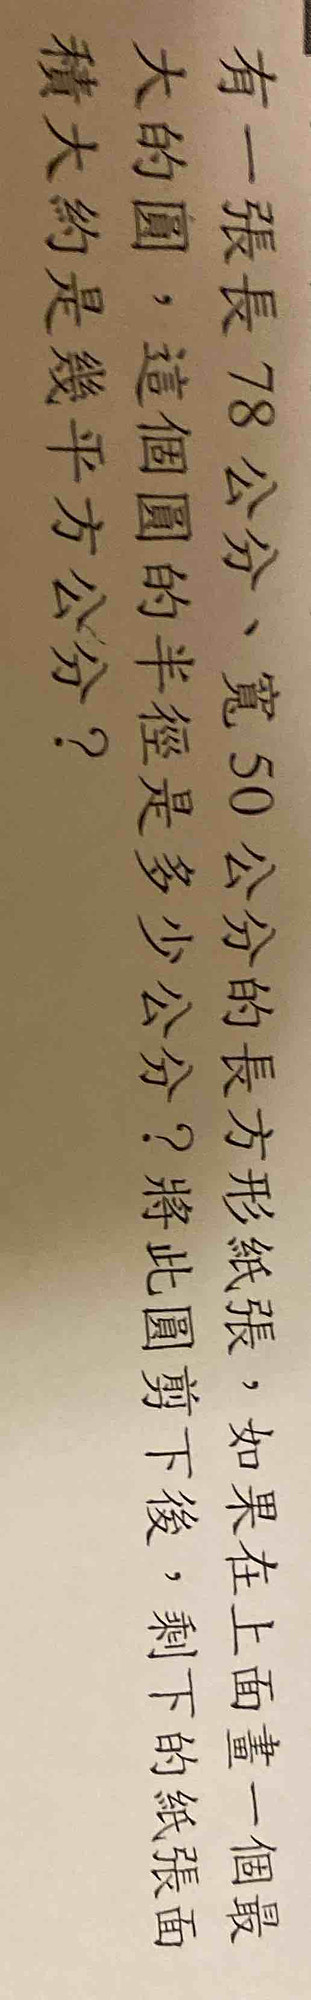 有一張長78公分、寬50公分的長方形紙張，如果在上面畫一個最
大的圓，這個圓的半徑是多少公分？將此圓剪下後，剩下的紙張面
積大約是幾平方公分？